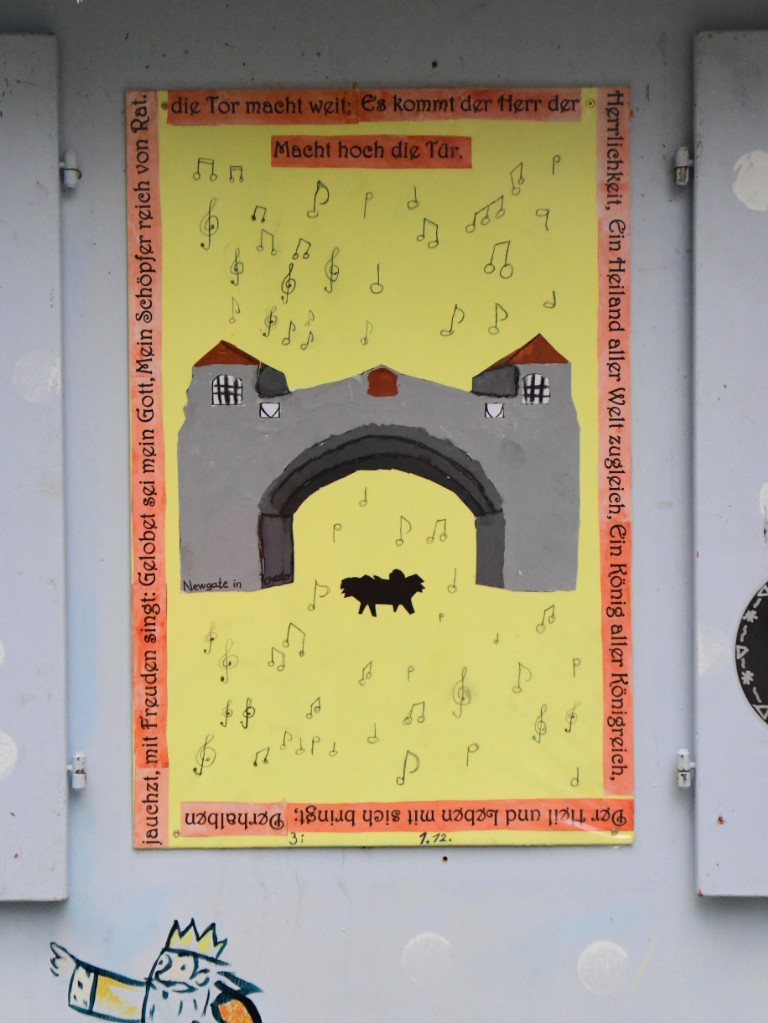 Macht hoch die Tür,
die Tor macht weit; Es kommt der Herr der
Herrlichkeit, Ein Heiland aller Welt zugleich, Ein König aller Königreich,
Der Heil und Leben mit sich bringt; Derhalben
jauchzt, mit Freuden singt: Gelobet sei mein Gott, Mein Schöpfer reich von Rat.
Newgate in
3i 1.12.